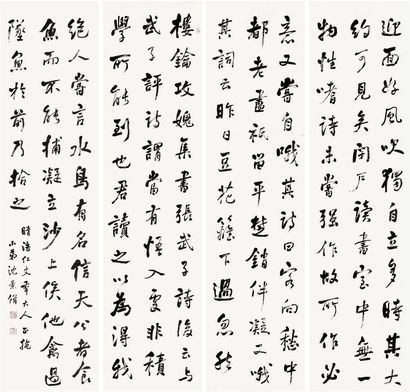 迎面好風吹獨自立多時其大
約可見矣閉戶讀書室中無一
物性嗜詩未嘗強作故所作必
意又嘗自哦其詩曰客向愁中
都老盡祇留平楚銷伴凝又哦
其詞云昨日豆花籬下過忽然
樓鑰攻媿集書張武子詩後云与
武子評詩謂當有悟入處非積
學所能到也君讀之以為得我
絕人嘗言水鳥有名信天公者食
魚而不能捕凝立沙上俟他禽過
墜魚於前乃拾之
仁丈大人正
小弟沈景脩